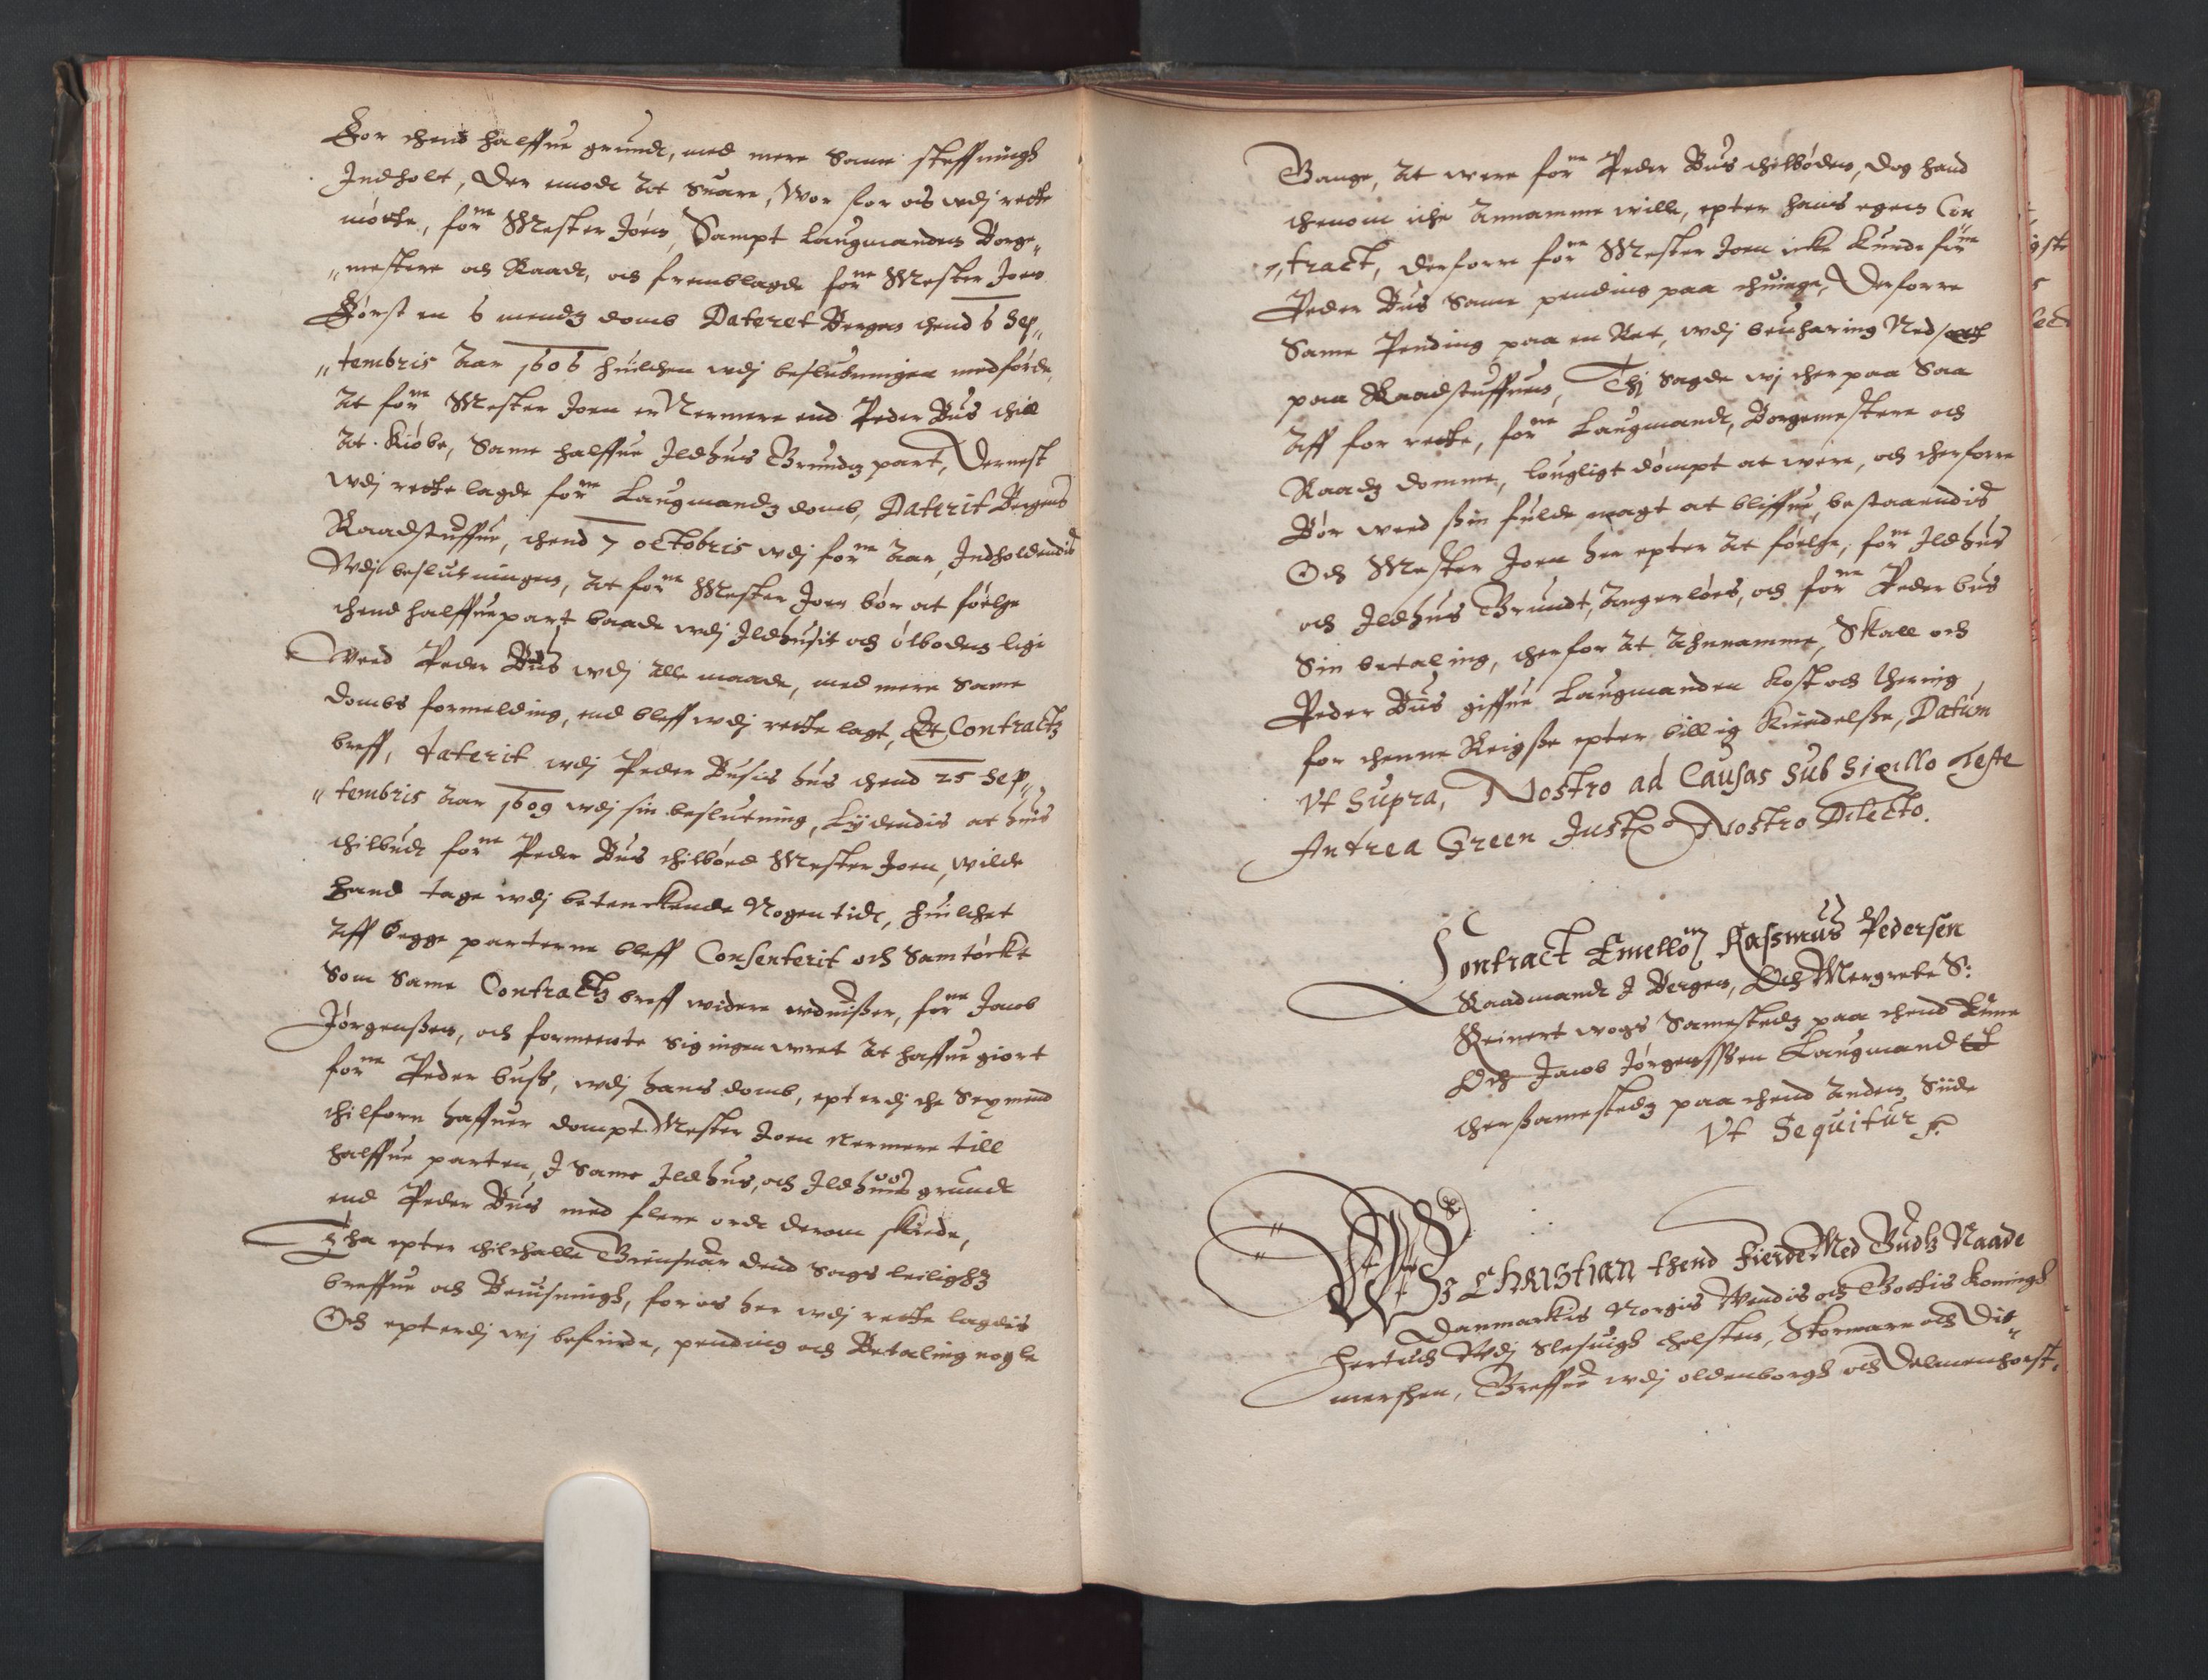 For thend halffue grundt, med mere same steffningh
Indholt, Der emodt att suare, Wor for os wdj rette
møtte, for:ne Mester Joen, Sampt Laugmanden Borge„
„mestere och Raadt, och fremblagde for:ne Mester Joen
Først en 6 mendz domb Dateret Bergen thend 6 Sep„
„tembris Aar 1606 huilchen wdj beslutningen medførde,
At for:ne Mester Joen er Nermere end Peder Bus thill
att kiøbe, Same halffue Ildhus Grundz part, Dernest
wdj rette lagde for:ne Laugmandz domb, Daterit Bergens
Raadstuffue, thend 7 octobris wdj for:ne Aar, Indholdendis
Wdj beslutningen, att for:ne Mester Joen bør at følge
thend halffuepart baade wdj Ildhusit och ølboden lige
Weed Peder Bus wdj alle maade, med mere same
dombs formelding, end bleff wdj rette lagt, Et Contractz
breff, daterit wdj Peder Busis hus thend 25 Sep„
„tembris Aar 1609 wdj sin beslutning, Lydendis at huis
thilbudt for:ne Peder Bus thilbøed Mester Joen, wilde
hand tage wdj betenckende Nogen tidt, huilchet
Aff begge parterne bleff Consenterit och Samtøckt
Som Same Contractz breff widere wduisser, for:ne Jacob
Jørgenssen, och formeente sig ingen wret at haffue giort
for:ne Peder buss, wdj hans domb, epterdj the Sexmend
thilforn haffuer dømpt Mester Joen Nermere till
halffue parten, I Same Ildhus, och Ildhuus grundt
end Peder Bus med flere ordt derom skiede,
Tha epter thilthalle Giensuar dend sags leilighz
breffue och Beuisningh, for os her wdj rette lagdis
Och epterdj wj befinde, pending och Betaling nogle
Gange, At were for:ne Peder Bus thilbøden, dog hand
thenom iche Annamme wille, epter hans egen Con
„tract, Derforre for:ne Mester Joen icke kunde for:ne
Peder Bus Same pending paa thuinge, Derforre
Same Pending paa en Ret, wdj beuharing Ned
paa Raadstuffuen, Thj sagde wj ther paa Saa
Aff for rette, for:ne Laugmandt, Borgemestere och
Raadz domme, lougligt dømpt at were, och therforre
Bør weed sin fulde magt at bliffue, bestaaendis
Och Mester Joen her epter At følge, for:ne Ildhus
och Ildhus Grundt, Angerløes, och for:ne Peder bus
Sin betaling, therfor At Ahnnamme, Skall och
Peder Bus giffue Laugmanden kost och thering
for thenne Reigsse epter billig kiendelsse, Datum
Vt Supra, Nostro ad Causas Sub Sigillo Teste
Andrea Green Justo Nostro Dilecto.
Contract Emellom Rassmus Pedersen
Raadmandt I Bergen, Och Mergrete S:
Reinert wogs Samestedz paa thend Ene
Och Jacob Jørgensssen Laugmand
thersamestedz paa thend Anden Siide
Vt Sequitur
WJ Christian thend Fierde Med Gudtz Naade
Danmarkis Norgis Wendis och Gottis koningh
Hertuch Wdj Slesuigh Holsten, Stormarn och Dit„
mershen, Greffue wdj oldenborgh och Delmenhorst,